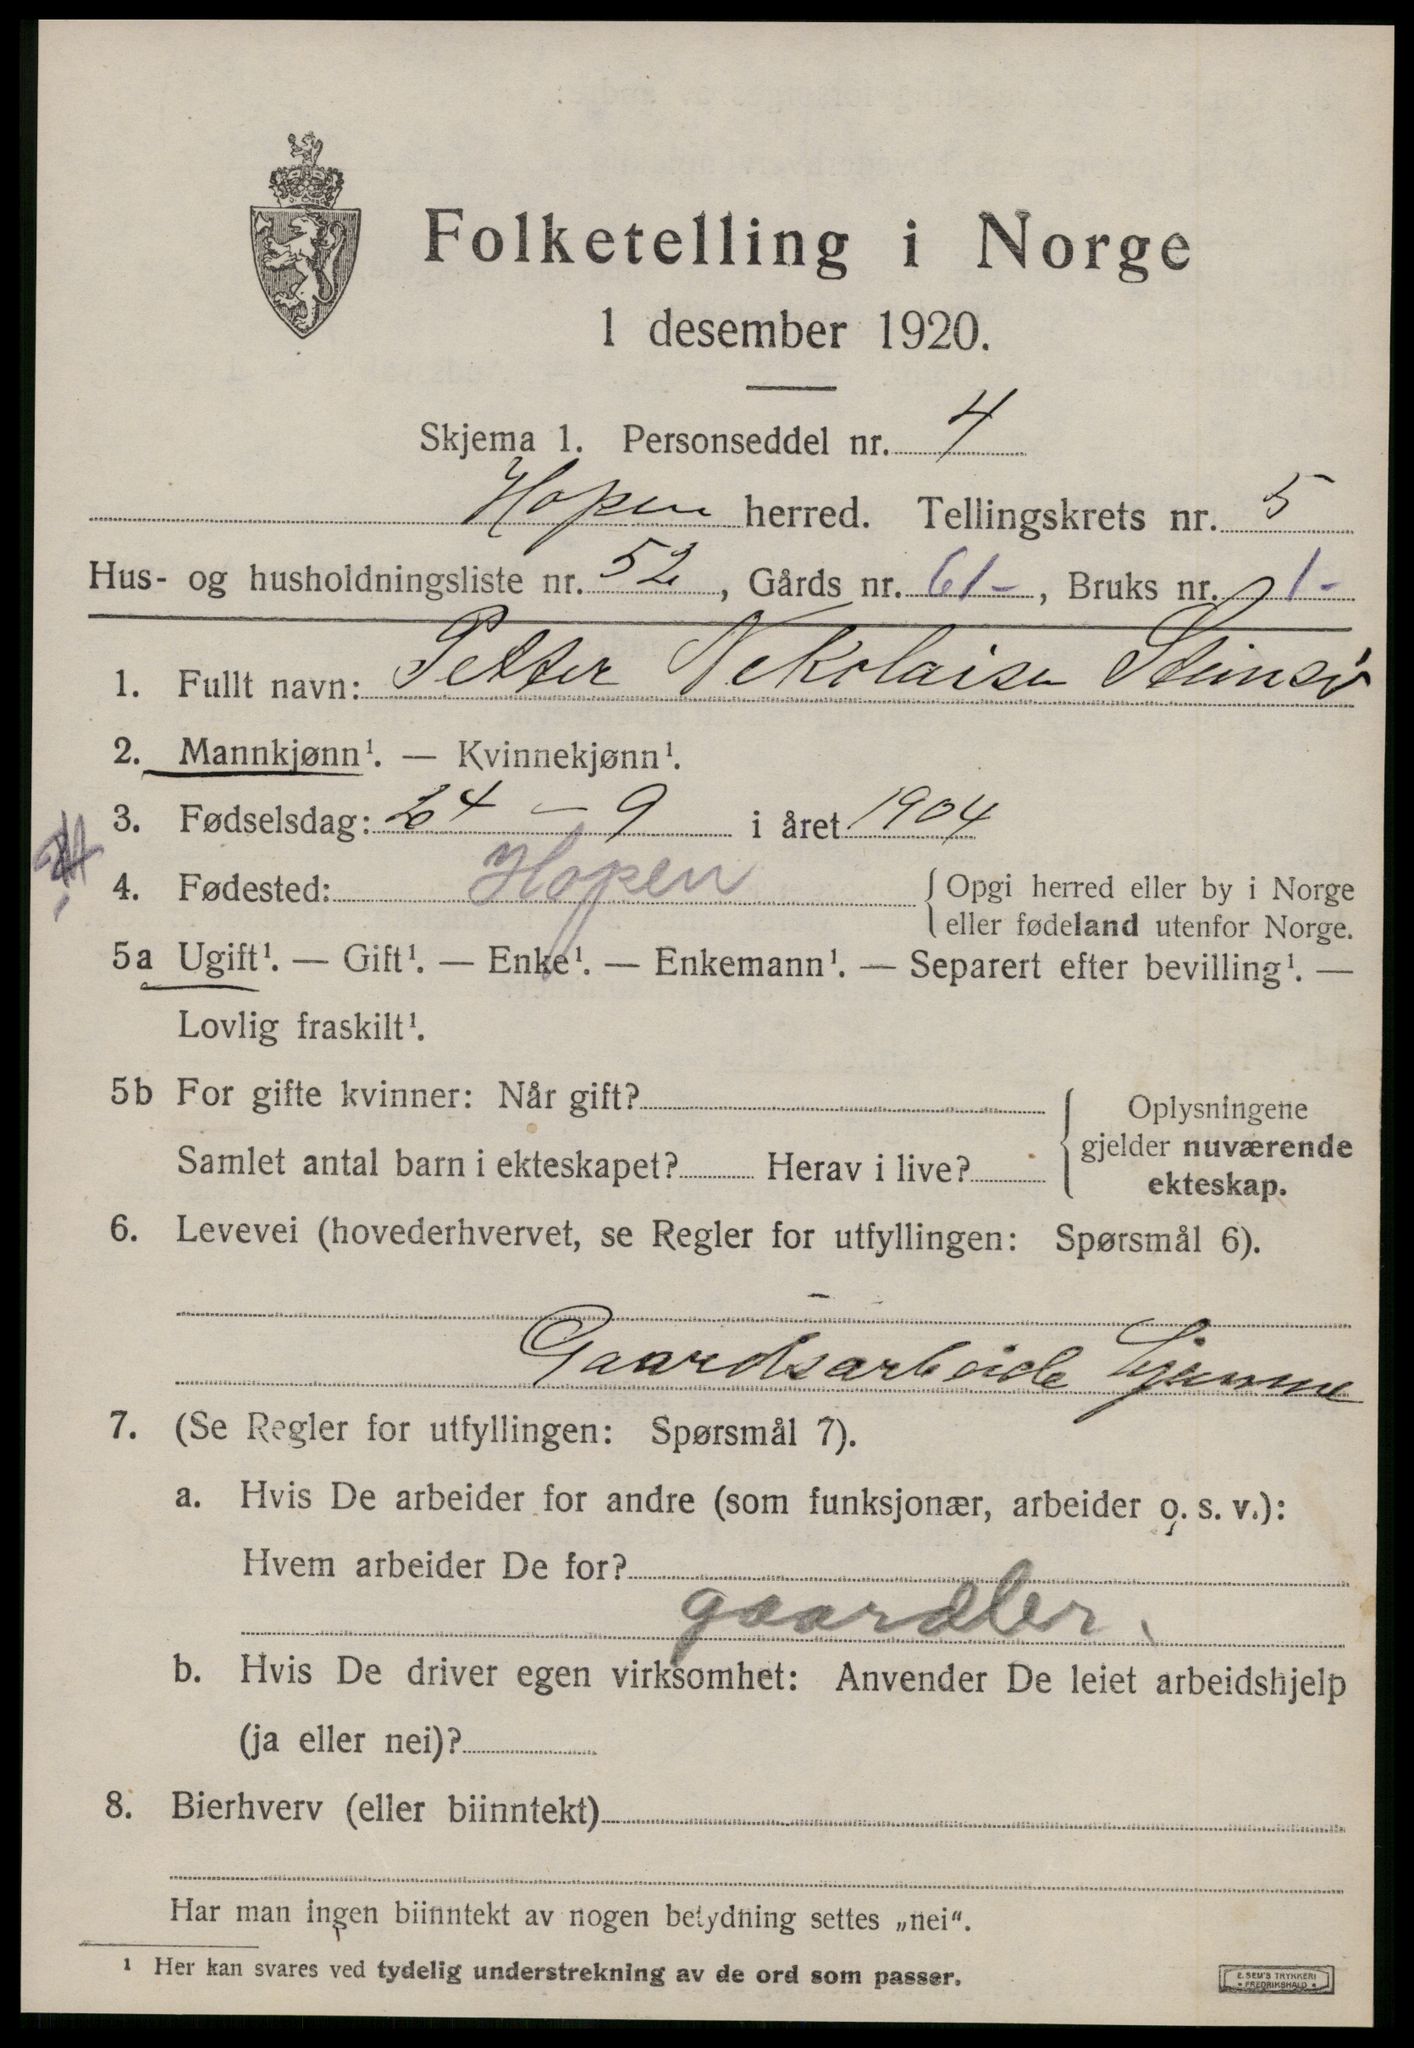 Folketelling i Norge
1 desember 1920.
Skjema 1. Personseddel nr. 4
Hopen herred. Tellingskrets nr. 5
Hus- og husholdningsliste nr. 52, Gårds nr. 61-, Bruks nr. 1-
1. Fullt navn: Petter Nekolaisen Steinsø
2. Mannkjønn¹. — Kvinnekjønn¹.
3. Fødselsdag: 24 - 9 i året 1904
4. Fødested: Hopen
{Opgi herred eller by i Norge
eller fødeland utenfor Norge.
5a Ugift¹. — Gift¹. — Enke¹. — Enkemann¹. — Separert efter bevilling¹. —
Lovlig fraskilt¹.
5b For gifte kvinner: Når gift?
Samlet antal barn i ekteskapet? Herav i live?
Oplysningene
gjelder nuværende
ekteskap.
6. Levevei (hovederhvervet, se Regler for utfyllingen: Spørsmål 6).
Gaardsarbeide hjemme
7. (Se Regler for utfyllingen: Spørsmål 7).
a. Hvis De arbeider for andre (som funksjonær, arbeider o. s. v.):
Hvem arbeider De for?
gaardbr.
b. Hvis De driver egen virksomhet: Anvender De leiet arbeidshjelp
(ja eller nei)?
8. Bierhverv (eller biinntekt)
Har man ingen biinntekt av nogen betydning settes „nei“.
¹ Her kan svares ved tydelig understrekning av de ord som passer.
E. SEM'S TRYKKERI
• FREDRIKSHALD •